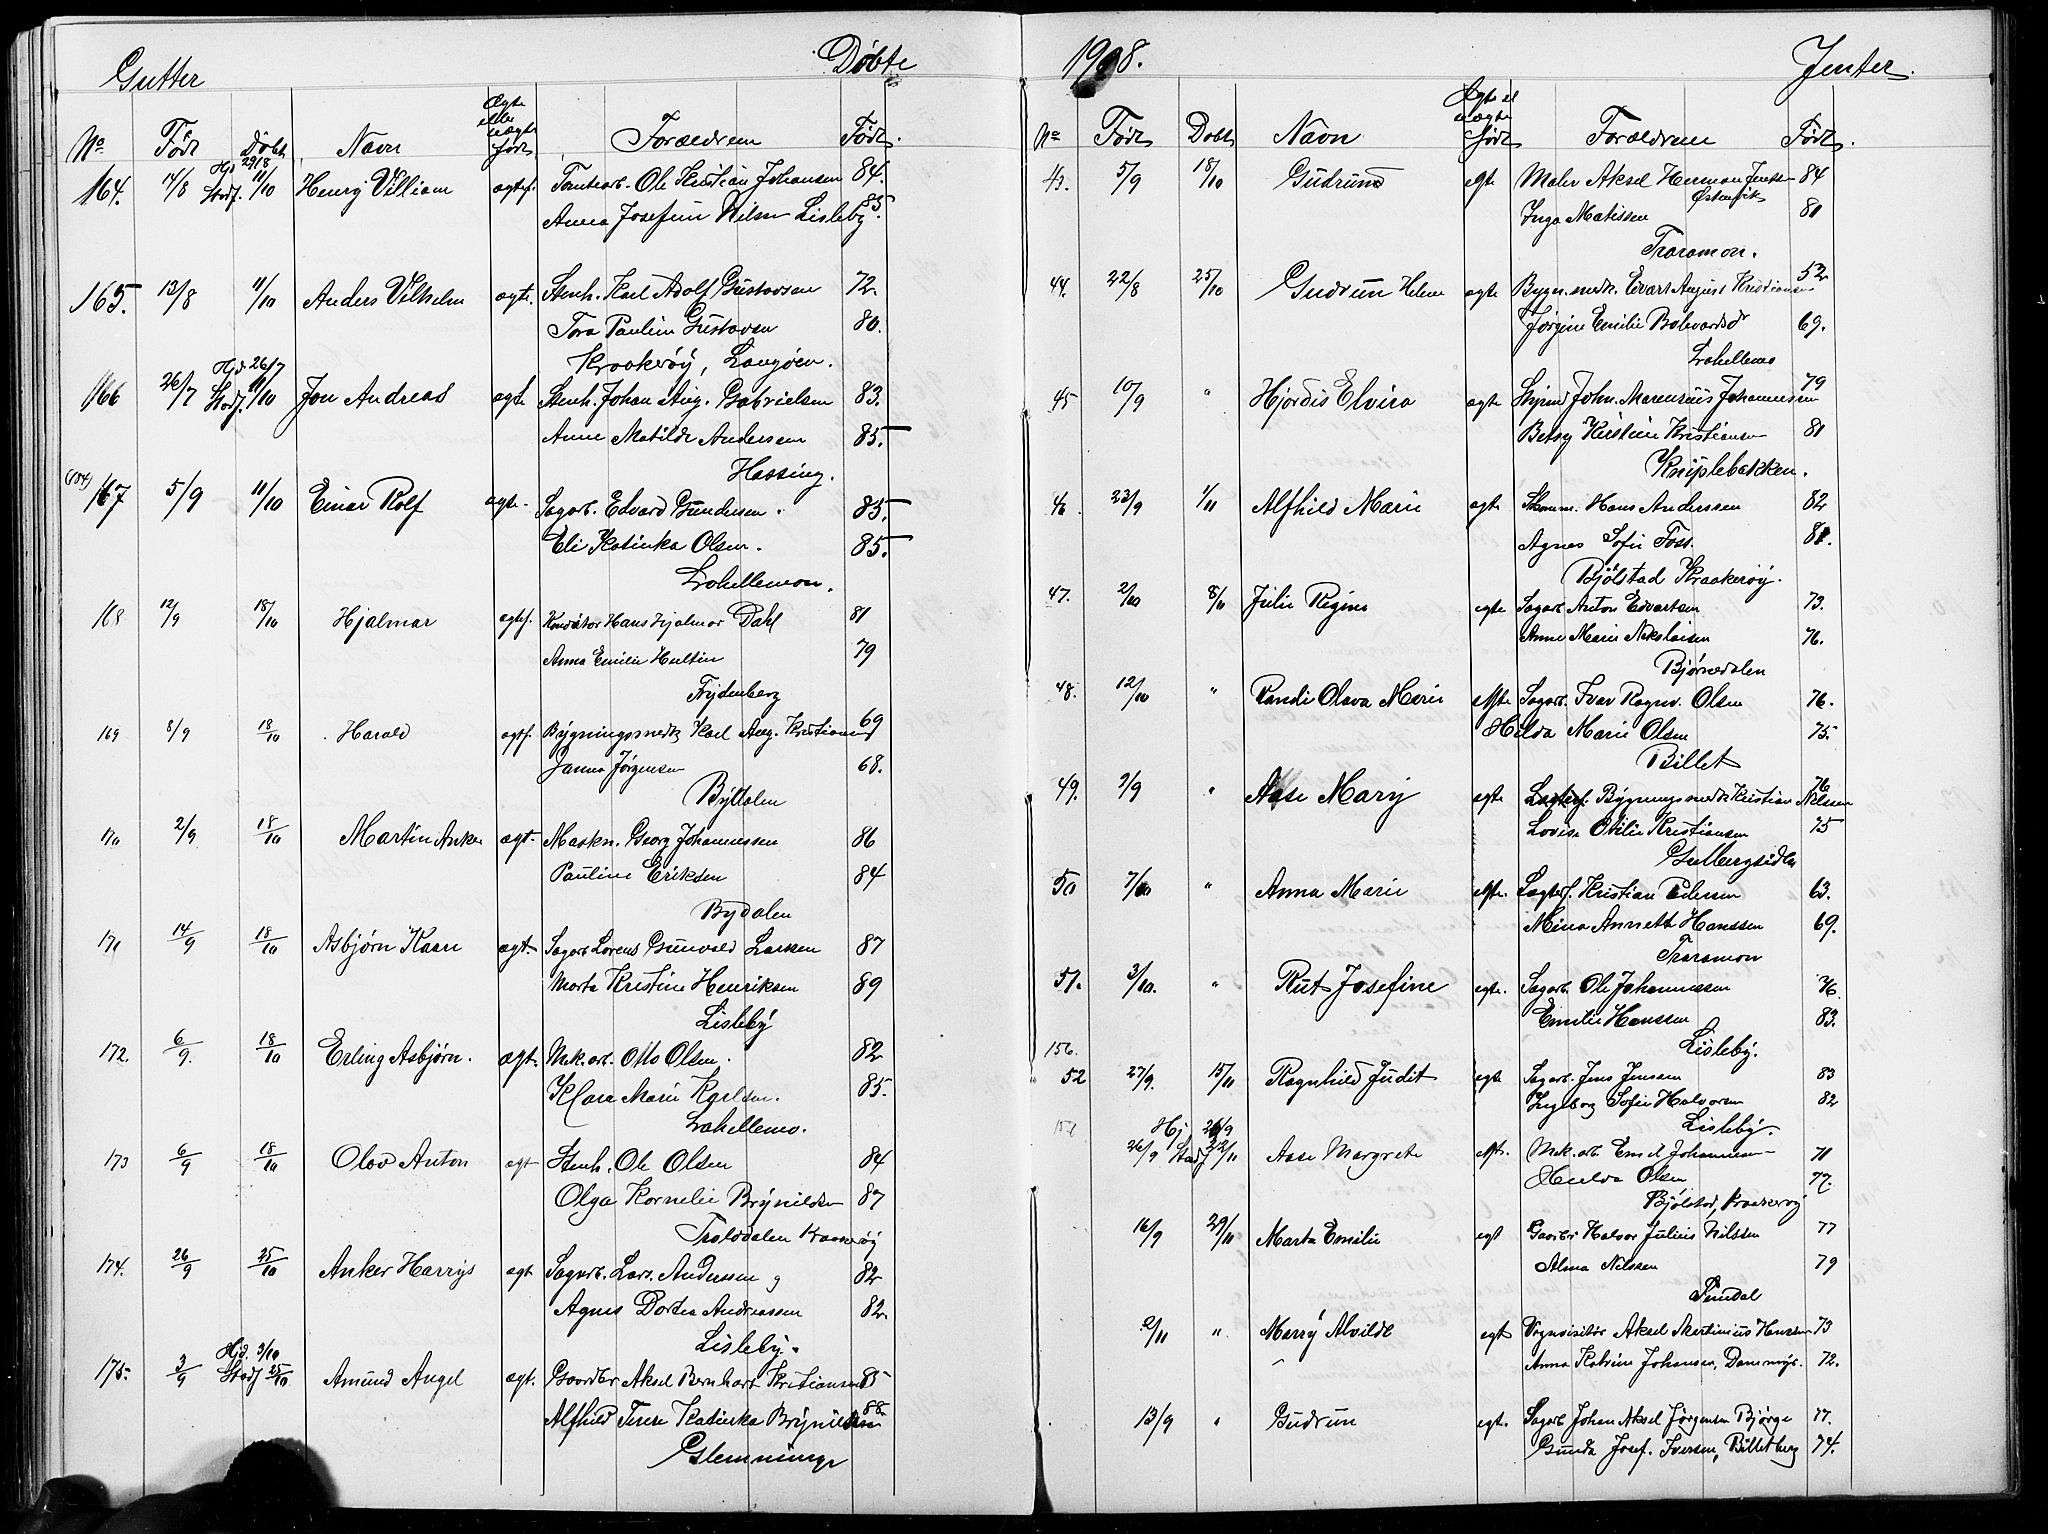 Gutter Døbte
No Født Døbt Navn Ægte eller uægte født Forældrene Født
Hj. 29/8
164. 14/8 Stadf. 11/10 Henry Villiam ægtef. Tomtearb. Ole Kristian Johansen 84.
Anna Josefine Nilsen Lisleby 85.
165. 13/8 11/10 Anders Vilhelm ægte. Stenh. Karl Adolf Gustavsen 72.
Tora Pauline Gustavsen 80.
Kraakerøy, Langøen.
Hjd. 26/7
166 26/7 Stadf. 11/10 Jon Andreas ægte Stenh. Johan Aug. Gabrielsen 83.
Anne Matilde Anderssen 85.
Hassing.
167 5/9 11/10 Einar Rolf ægte. Sagarb. Edvard Gundersen. 85.
Eli Katinka Olsen. 85.
Lahellemoen.
168 12/9 18/10 Hjalmar ægtef. Konduktør Hans Hjalmar Dahl 81
Anna Emilie Hultin 79
Frydenberg
169 8/9 18/10 Harald ægtf. Bygningssnedk. Karl Aug. Kristiansen 69
Janna Jørgensen 68.
Bydalen
170 2/9 18/10 Martin Anker ægt. Maskn. Georg Johannessen 86
Pauline Eriksen 84
Bydalen
171 14/9 18/10 Asbjørn Kaare ægt. Sagarb. Lorens Gunvald Larsen 87
Marta Kristine Henriksen 89
Lisleby
172. 6/9. 18/10 Erling Asbjørn. ægt. Mek. arb. Otto Olsen. 82
Klara Marie Karlsen. 85.
Lahellemo.
173 6/9 18/10 Olav Anton ægt Stenh. Ole Olsen 84
Olga Kornelie Brynildsen 87
Trolddalen Kraakerøy
174. 26/9 25/10 Anker Harrys ægt Sagarb. Lars. Anderssen 82
Agnes Dortea Andreassen 82.
Lisleby.
Hjd. 3/10
175. 3/9 Stadf 25/10 Amund Angel ægt. Gaardbr Aksel Bernhart Kristiansen 85
Alfhild Terese Katinka Brynildsen 88
Glemminge
1908. Jenter.
No Født Døbt Navn Ægte el uægte født Forældrene Født.
43. 5/9 18/10 Gudrun egte Maler Aksel Herman Jensen 84
Østenvik
Inga Matissen 81
Traramoen.
44. 22/8 25/10 Gudrun Helene ægte Bygn. snedk. Edvart August Kristiansen 52
Jørgine Emilie Bolvardsd 69.
Lahellemo
45 10/9 " Hjørdis Elvira ægte John. Marensius Johannessen 79
Betsy Kirstine Kristiansen 81
Kniplebakken.
46. 23/9 1/11 Alfhild Marie ægte Skomm. Hans Anderssen 82
Agnes Sofie Foss. 81.
Bjølstad Kraakerøy.
47. 2/10 8/11 Julie Regine egte Sagarb. Anton Edvartsen 73.
Anne Marie Nikolaisen 76.
Bjørnedalen
48. 12/10 " Randi Olava Marie egte Sagarb. Ivar Ragnv. Olsen 76.
Hilda Marie Olsen 75.
Billet
49. 2/9 " Aase Mary ægte Bygningssnedk Kristian Nilssen 76
Lovise Otilie Kristiansen 75
Gulbergsiden
50 7/10 " Anna Marie ekte. Sagtef. Kristian Pedersen 63.
Mina Annette Hanssen 69.
Traramoen
51. 3/10. " Rut Josefine egte. Sagarb. Ole Johannessen 76.
Emilie Hanssen 83.
Lisleby.
156.
52 27/9. 15/11 Ragnhild Judit egte Sagarb. Jens Jenssen 83
Ingeborg Sofie Halvorsen 82
Lisleby.
Hj 26/9
26/9 Stadf 22/11 Aase Margrete ekte. Mek. arb Emil Johannessen 71
Hulda Olsen 77.
Bjølstad, Kraakerøy
16/9 29/11 Marta Emilie egt Gaardbr Halvor Julius Nilssen 77
Alma Nilssen 79
2/11 " Marry Alvilde egt Vognvisitør Aksel Martinius Hanssen 73
Anna Katrine Johansen, Dammyr. 72.
13/9 " Gudrun egt. Sagarb Johan Aksel Jørgensen Bjørge 77.
Gunda Josef. Iversen, Billetberg 74.